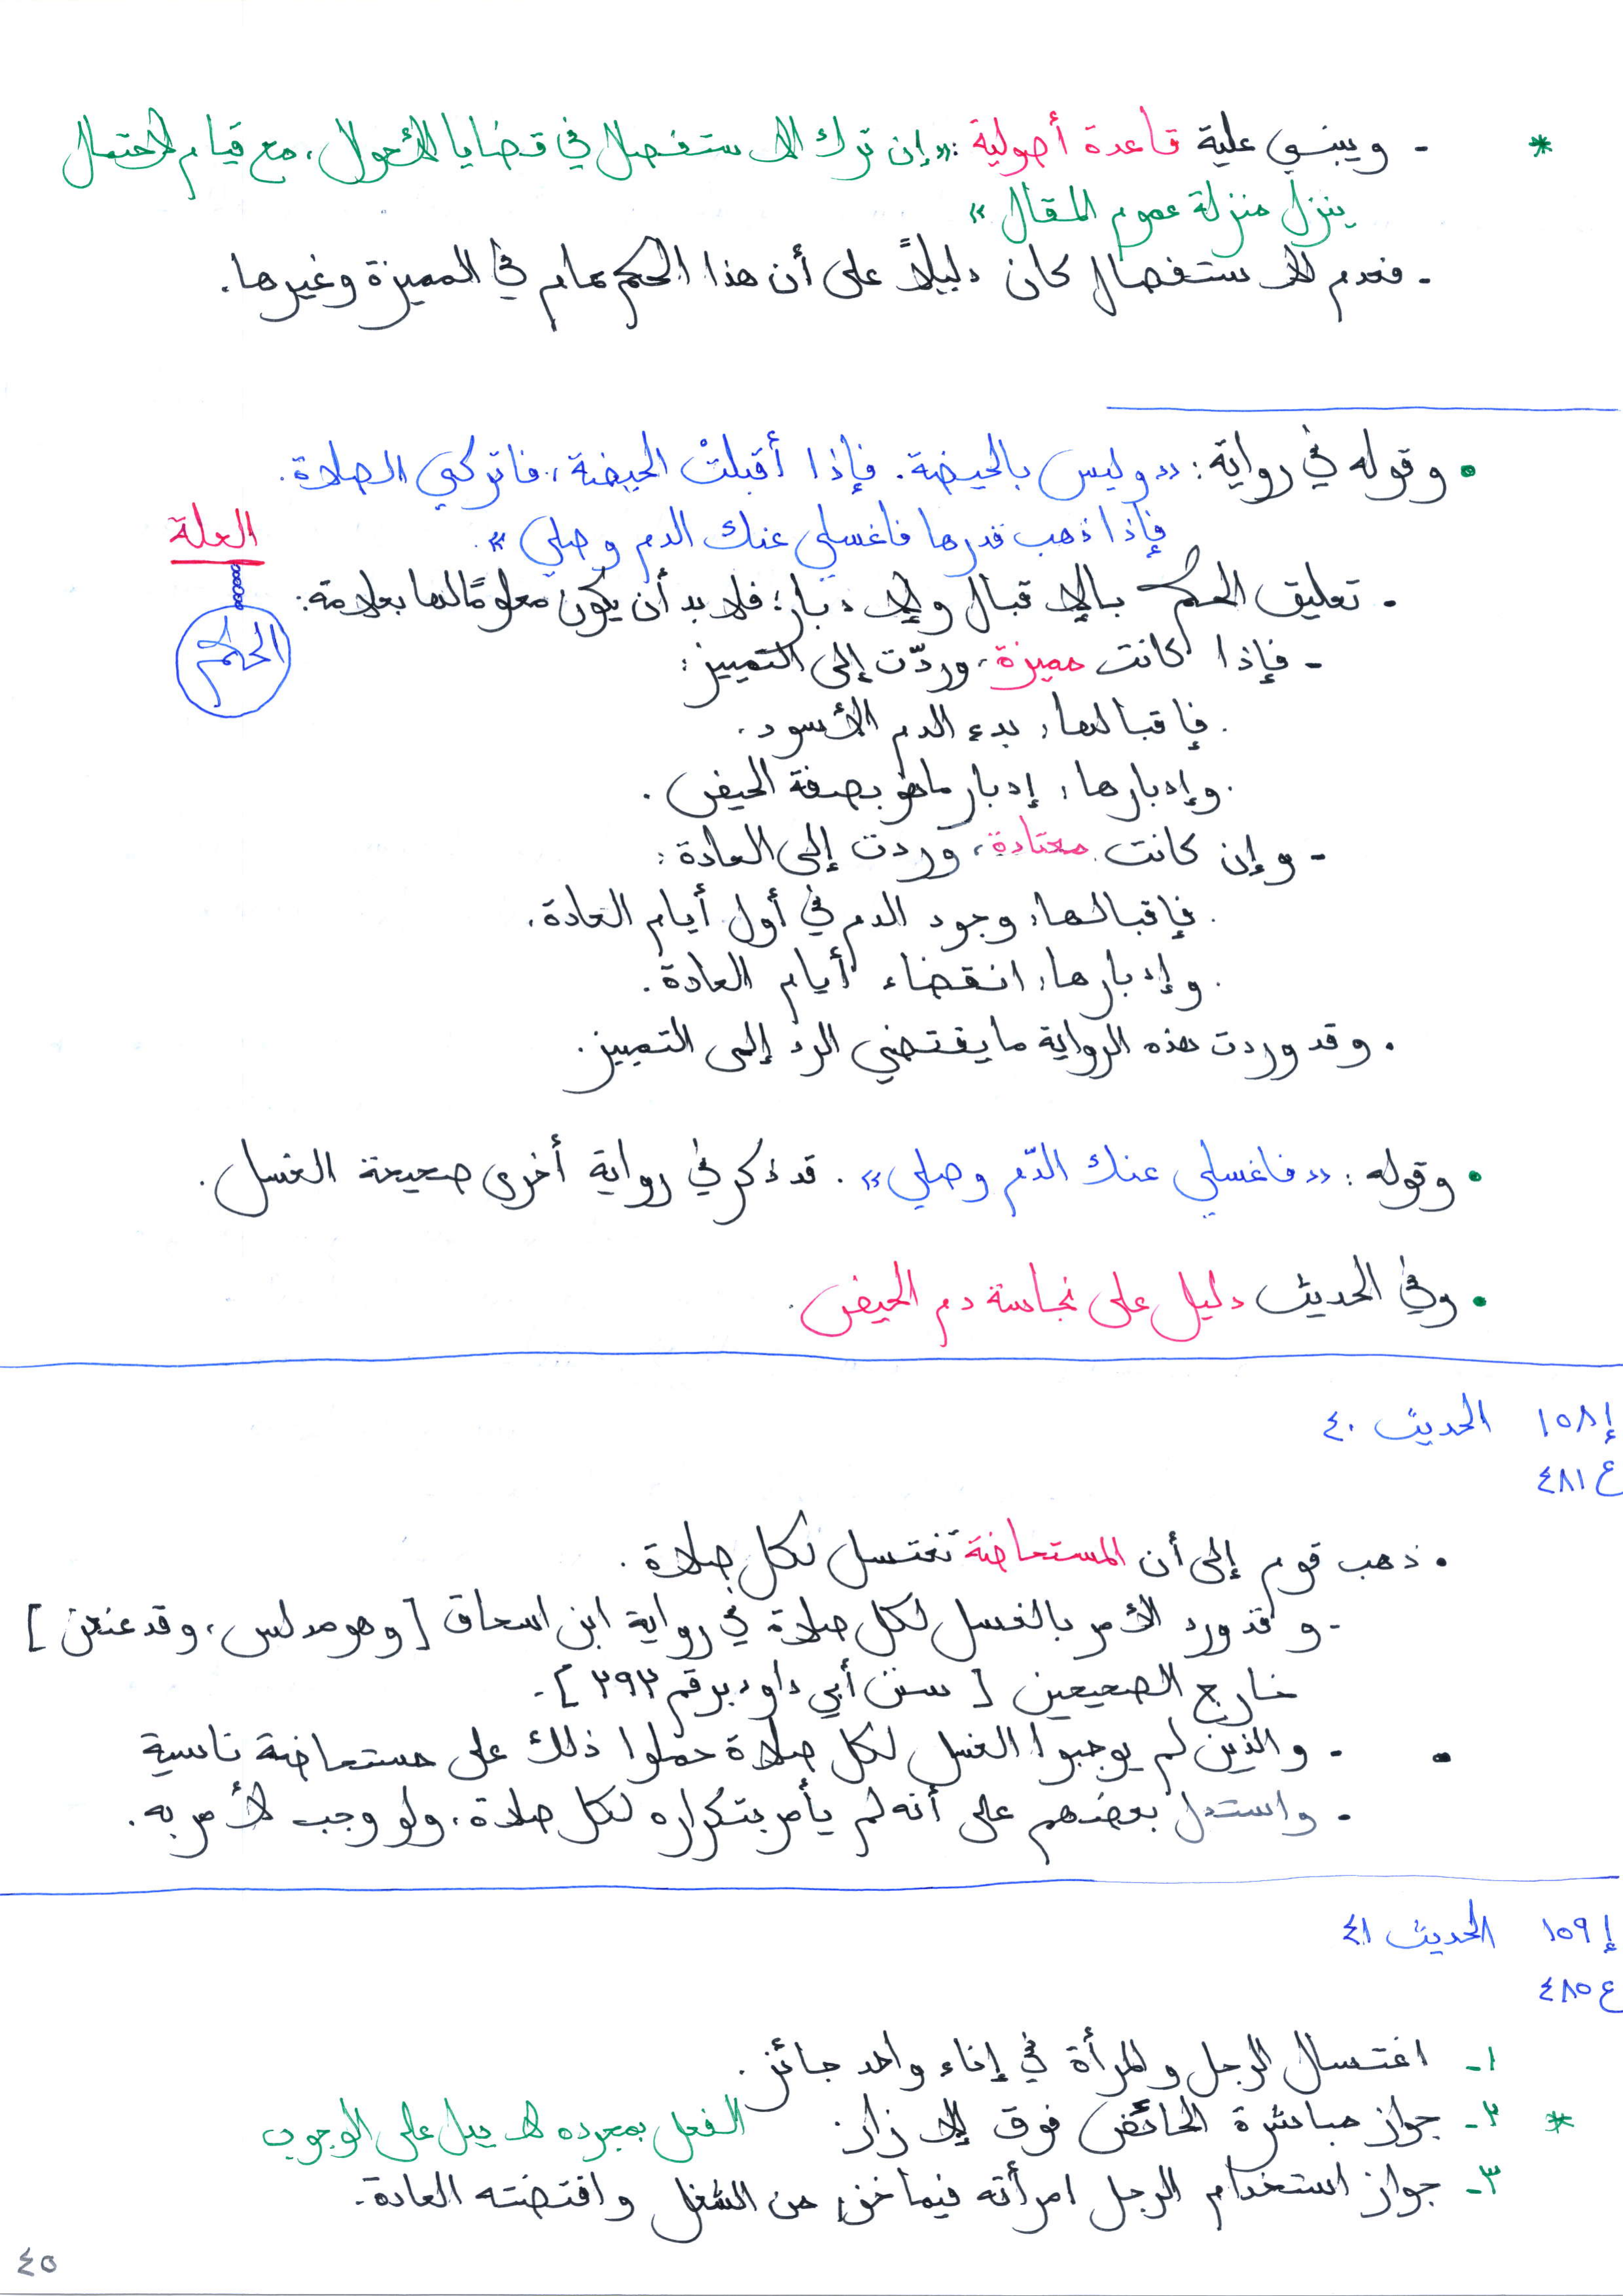 * - ويبنى علية قاعدة أصولية: «إن ترك الاستفصال في قضايا الأحوال، مع قيام الاحتمال
ينزل منزلة عموم المقال»
- فعدم الاستفصال كان دليلاً على أن هذا الحكم عام في المميزة وغيرها.
• وقوله في رواية: «وليس بالحيضة. فإذا أقبلتْ الحيضة، فاتركي الصلاة.
فإذا ذهب قدرها فاغسلي عنك الدم وصلي».
العلة
الحكم
- تعليق الحكم بالإقبال والإدبار؛ فلا بد أن يكون معلومًا لها بعلامة:
- فإذا كانت مميزة، وردّت إلى التمييز:
. فإقبالها: بدء الدم الأسود.
. وإدبارها: إدبار ما هو بصفة الحيض.
- وإن كانت معتادة، وردت إلى العادة:
. فإقبالها: وجود الدم في أول أيام العادة.
. وإدبارها: انقضاء أيام العادة.
. وقد وردت هذه الرواية ما يقتضي الرد إلى التمييز.
• وقوله: «فاغسلي عنك الدّم وصلي». قد ذكر في رواية أخرى صحيحة الغسل.
• وفي الحديث دليل على نجاسة دم الحيض.
إ ١٥٨ الحديث ٤٠
ع ٤٨١
• ذهب قوم إلى أن المستحاضة تغتسل لكل صلاة.
- وقد ورد الأمر بالغسل لكل صلاة في رواية ابن اسحاق [وهو مدلس، وقد عنعن]
خارج الصحيحين [سنن أبي داود برقم ٢٩٢].
• - والذين لم يوجبوا الغسل لكل صلاة حملوا ذلك على مستحاضة ناسية
- واستدل بعضهم على أنه لم يأمر بتكراره لكل صلاة، ولو وجب لأمر به.
إ ١٥٩ الحديث ٤١
ع ٤٨٥
١- اغتسال الرجل والمرأة في إناء واحد جائز.
* ٢- جواز مباشرة الحائض فوق الإزار. الفعل بمجرده لا يدل على الوجوب
٣- جواز استخدام الرجل امرأته فيما خف من الشغل واقتضته العادة.
٤٥